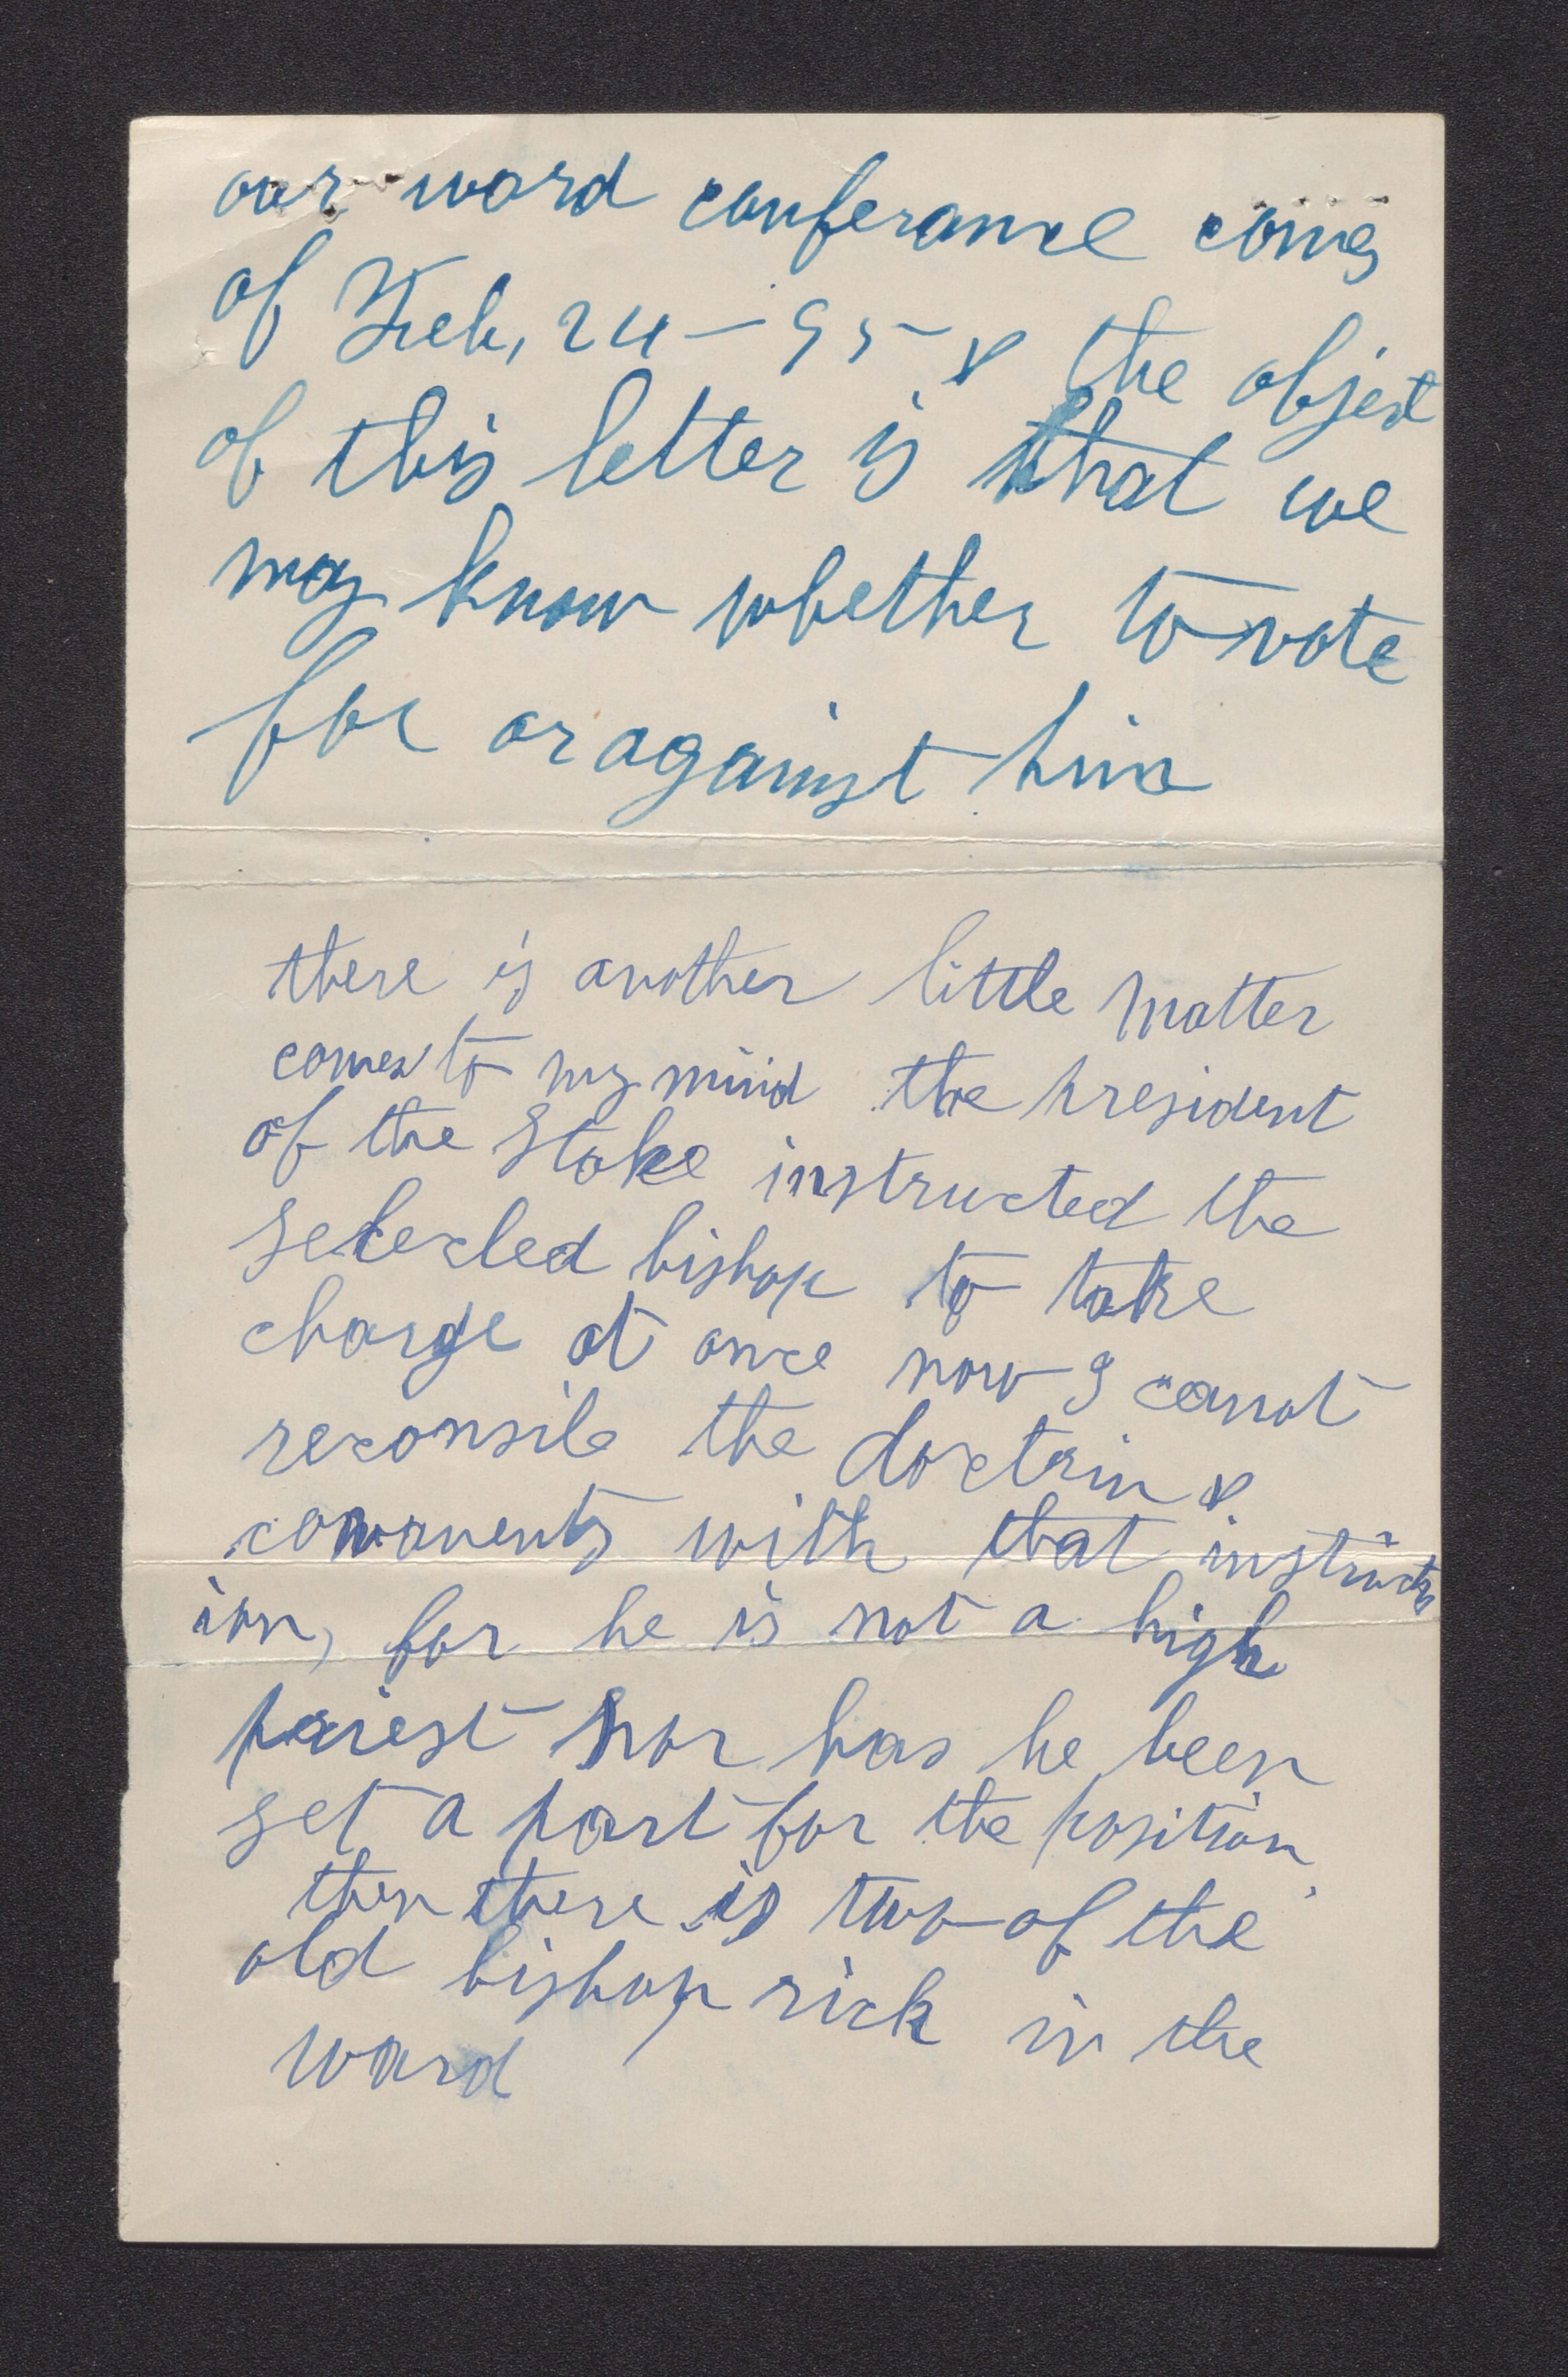 our ward conferance comes
of Feb, 24 - 95 & the object
of this letter is that we
may know whether to vote
for or against him
there is another little matter
comes to my mind the president
of the Stake instructed the
selected bishop to take
charge at once now I cannot
reconsile the doctrin &
covanents with that instruct
ion, for he is not a high
priest nor has he been
set a part for the position,
then there is two of the
old bishop rick in the
ward